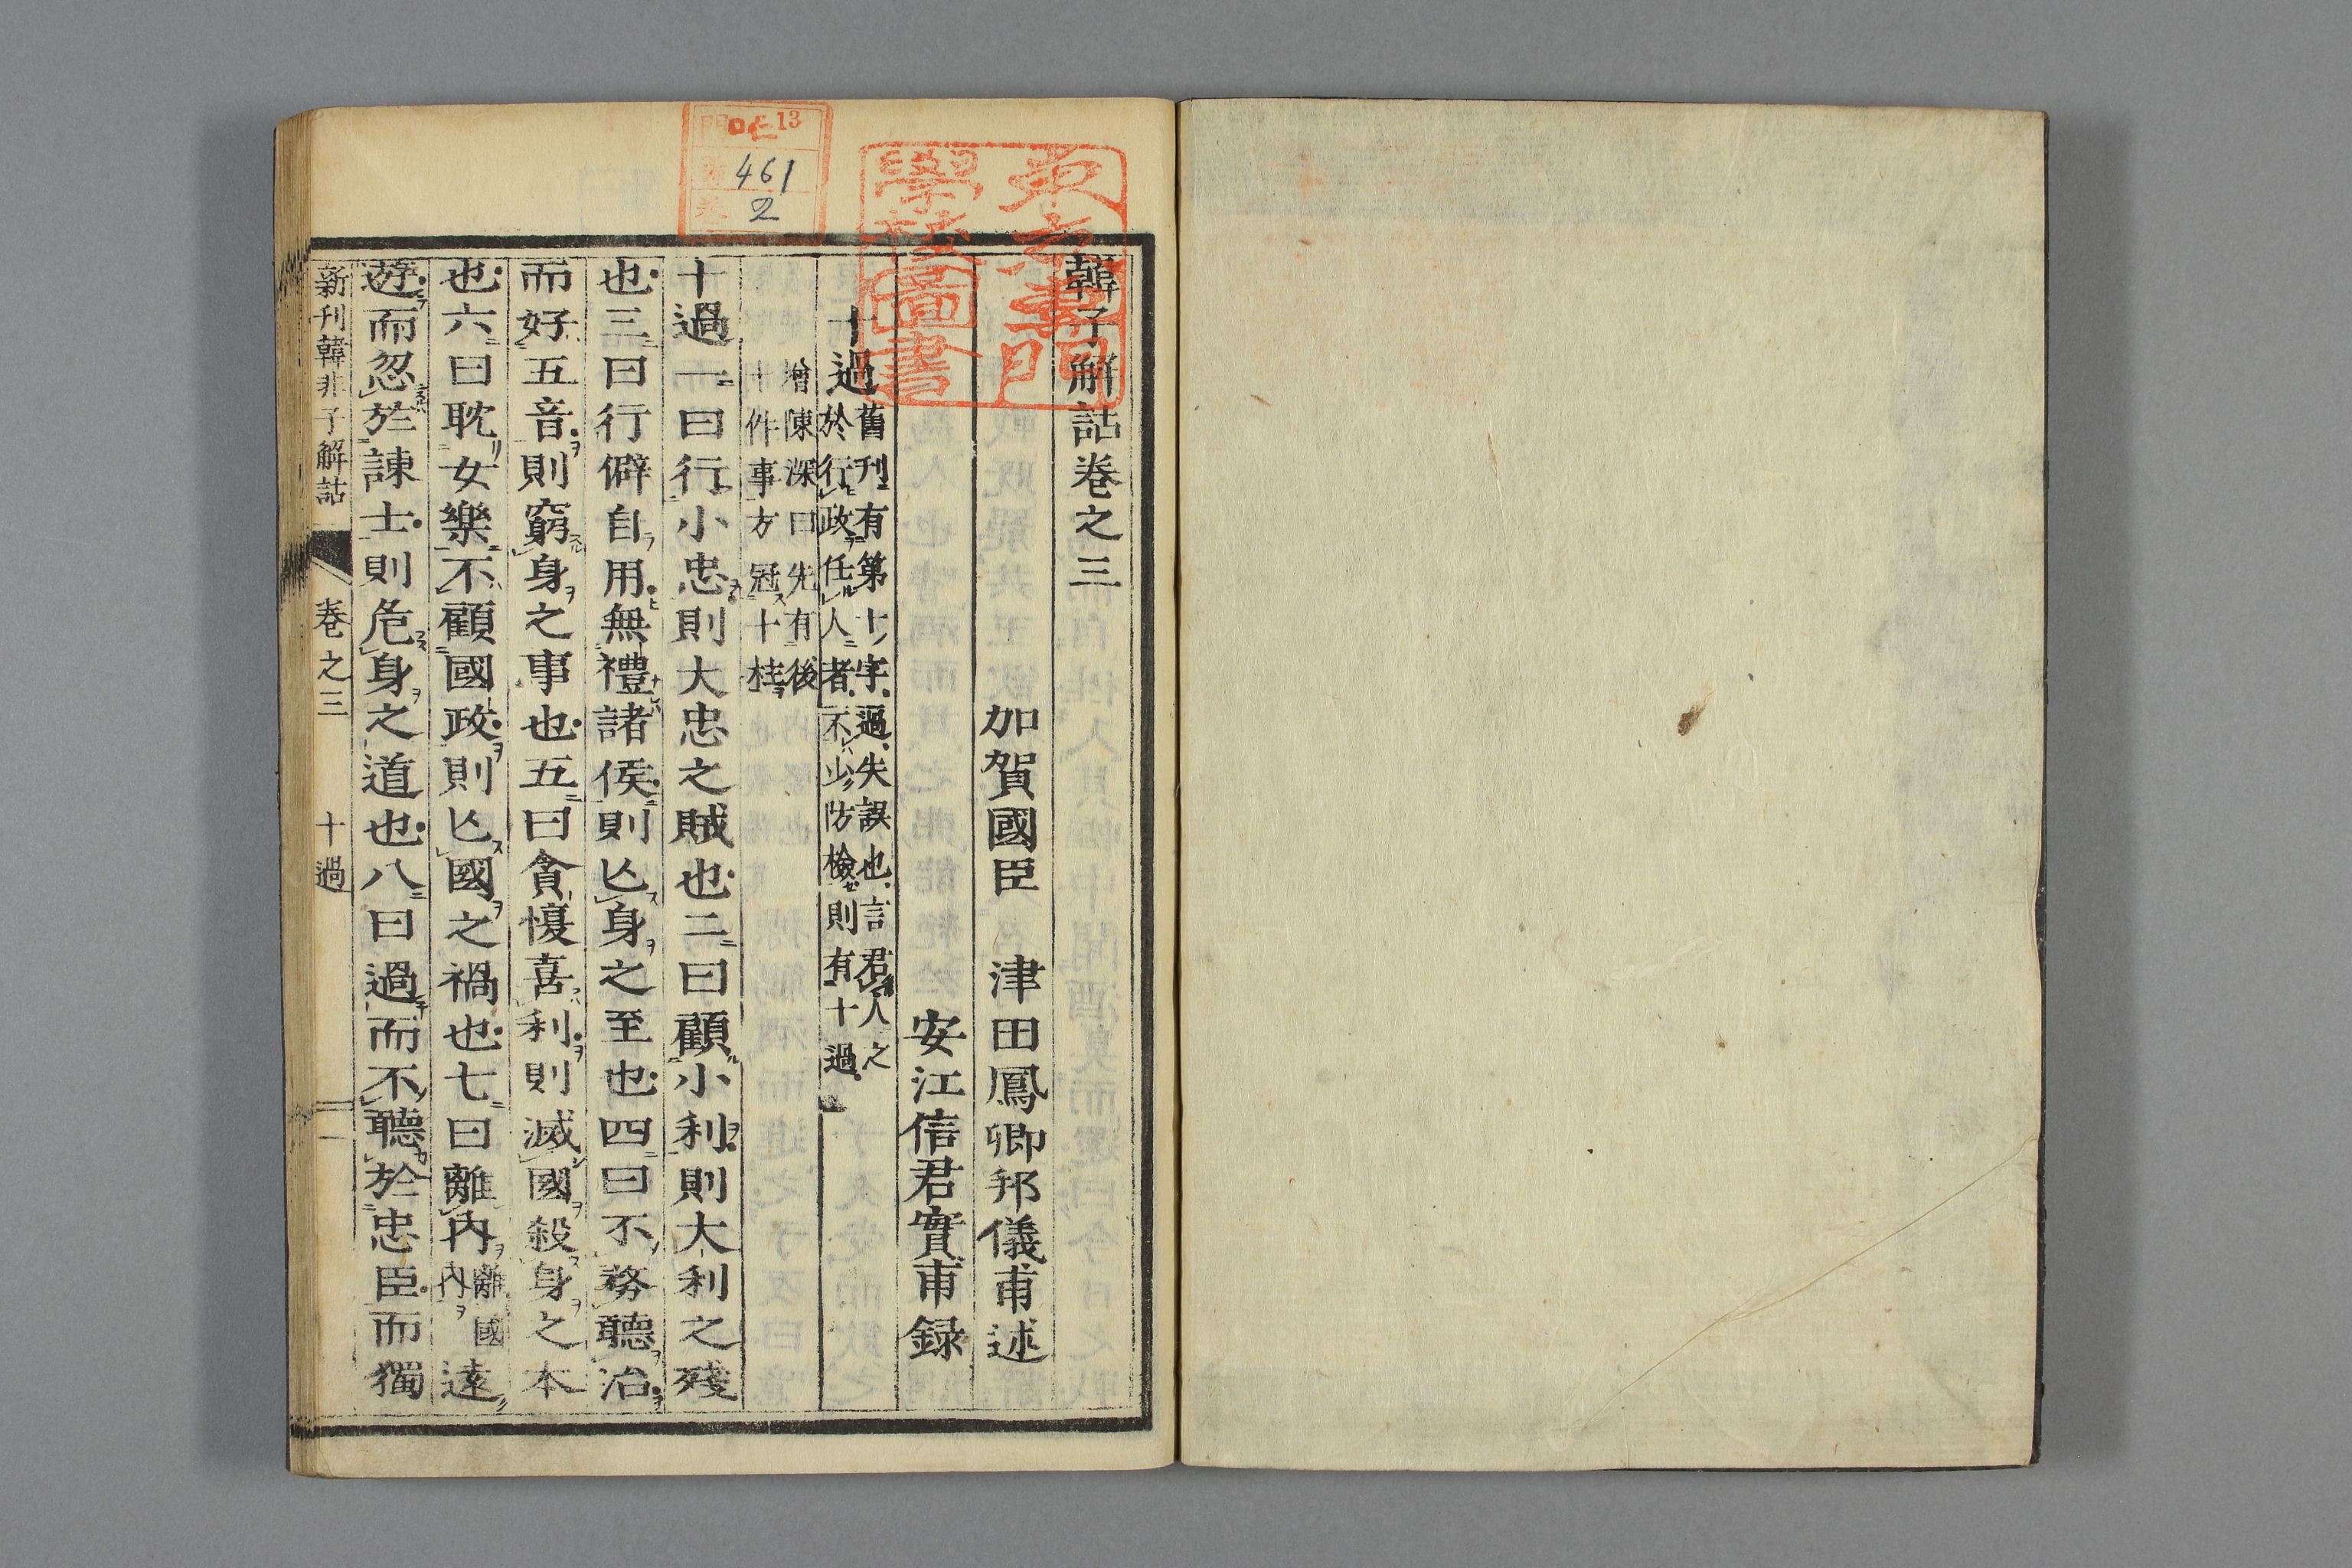 韓子解詁卷之三
加賀國臣　津田鳳卿邦儀甫述
安江信君實甫録
十過
舊刊有第十字過失誤也言君人之
於行政任人者不少防檢則有十過
增陳深曰先有後
十件事方冠十桂
十過一曰行小忠則大忠之賊也二曰顧小利則大利之殘
也三曰行僻自用無禮諸侯則亾身之至也四曰不務聽治
而好五音則窮身之事也五曰貪愎喜利則滅國殺身之本
也六曰耽女樂不顧國政則亾國之禍也七曰離內離國內遠
遊而忽於諫士則危身之道也八曰過而不聽於忠臣而獨
新刊韓非子解詁　卷之三　十過　一
東方專門
學校圖書
13
461
2